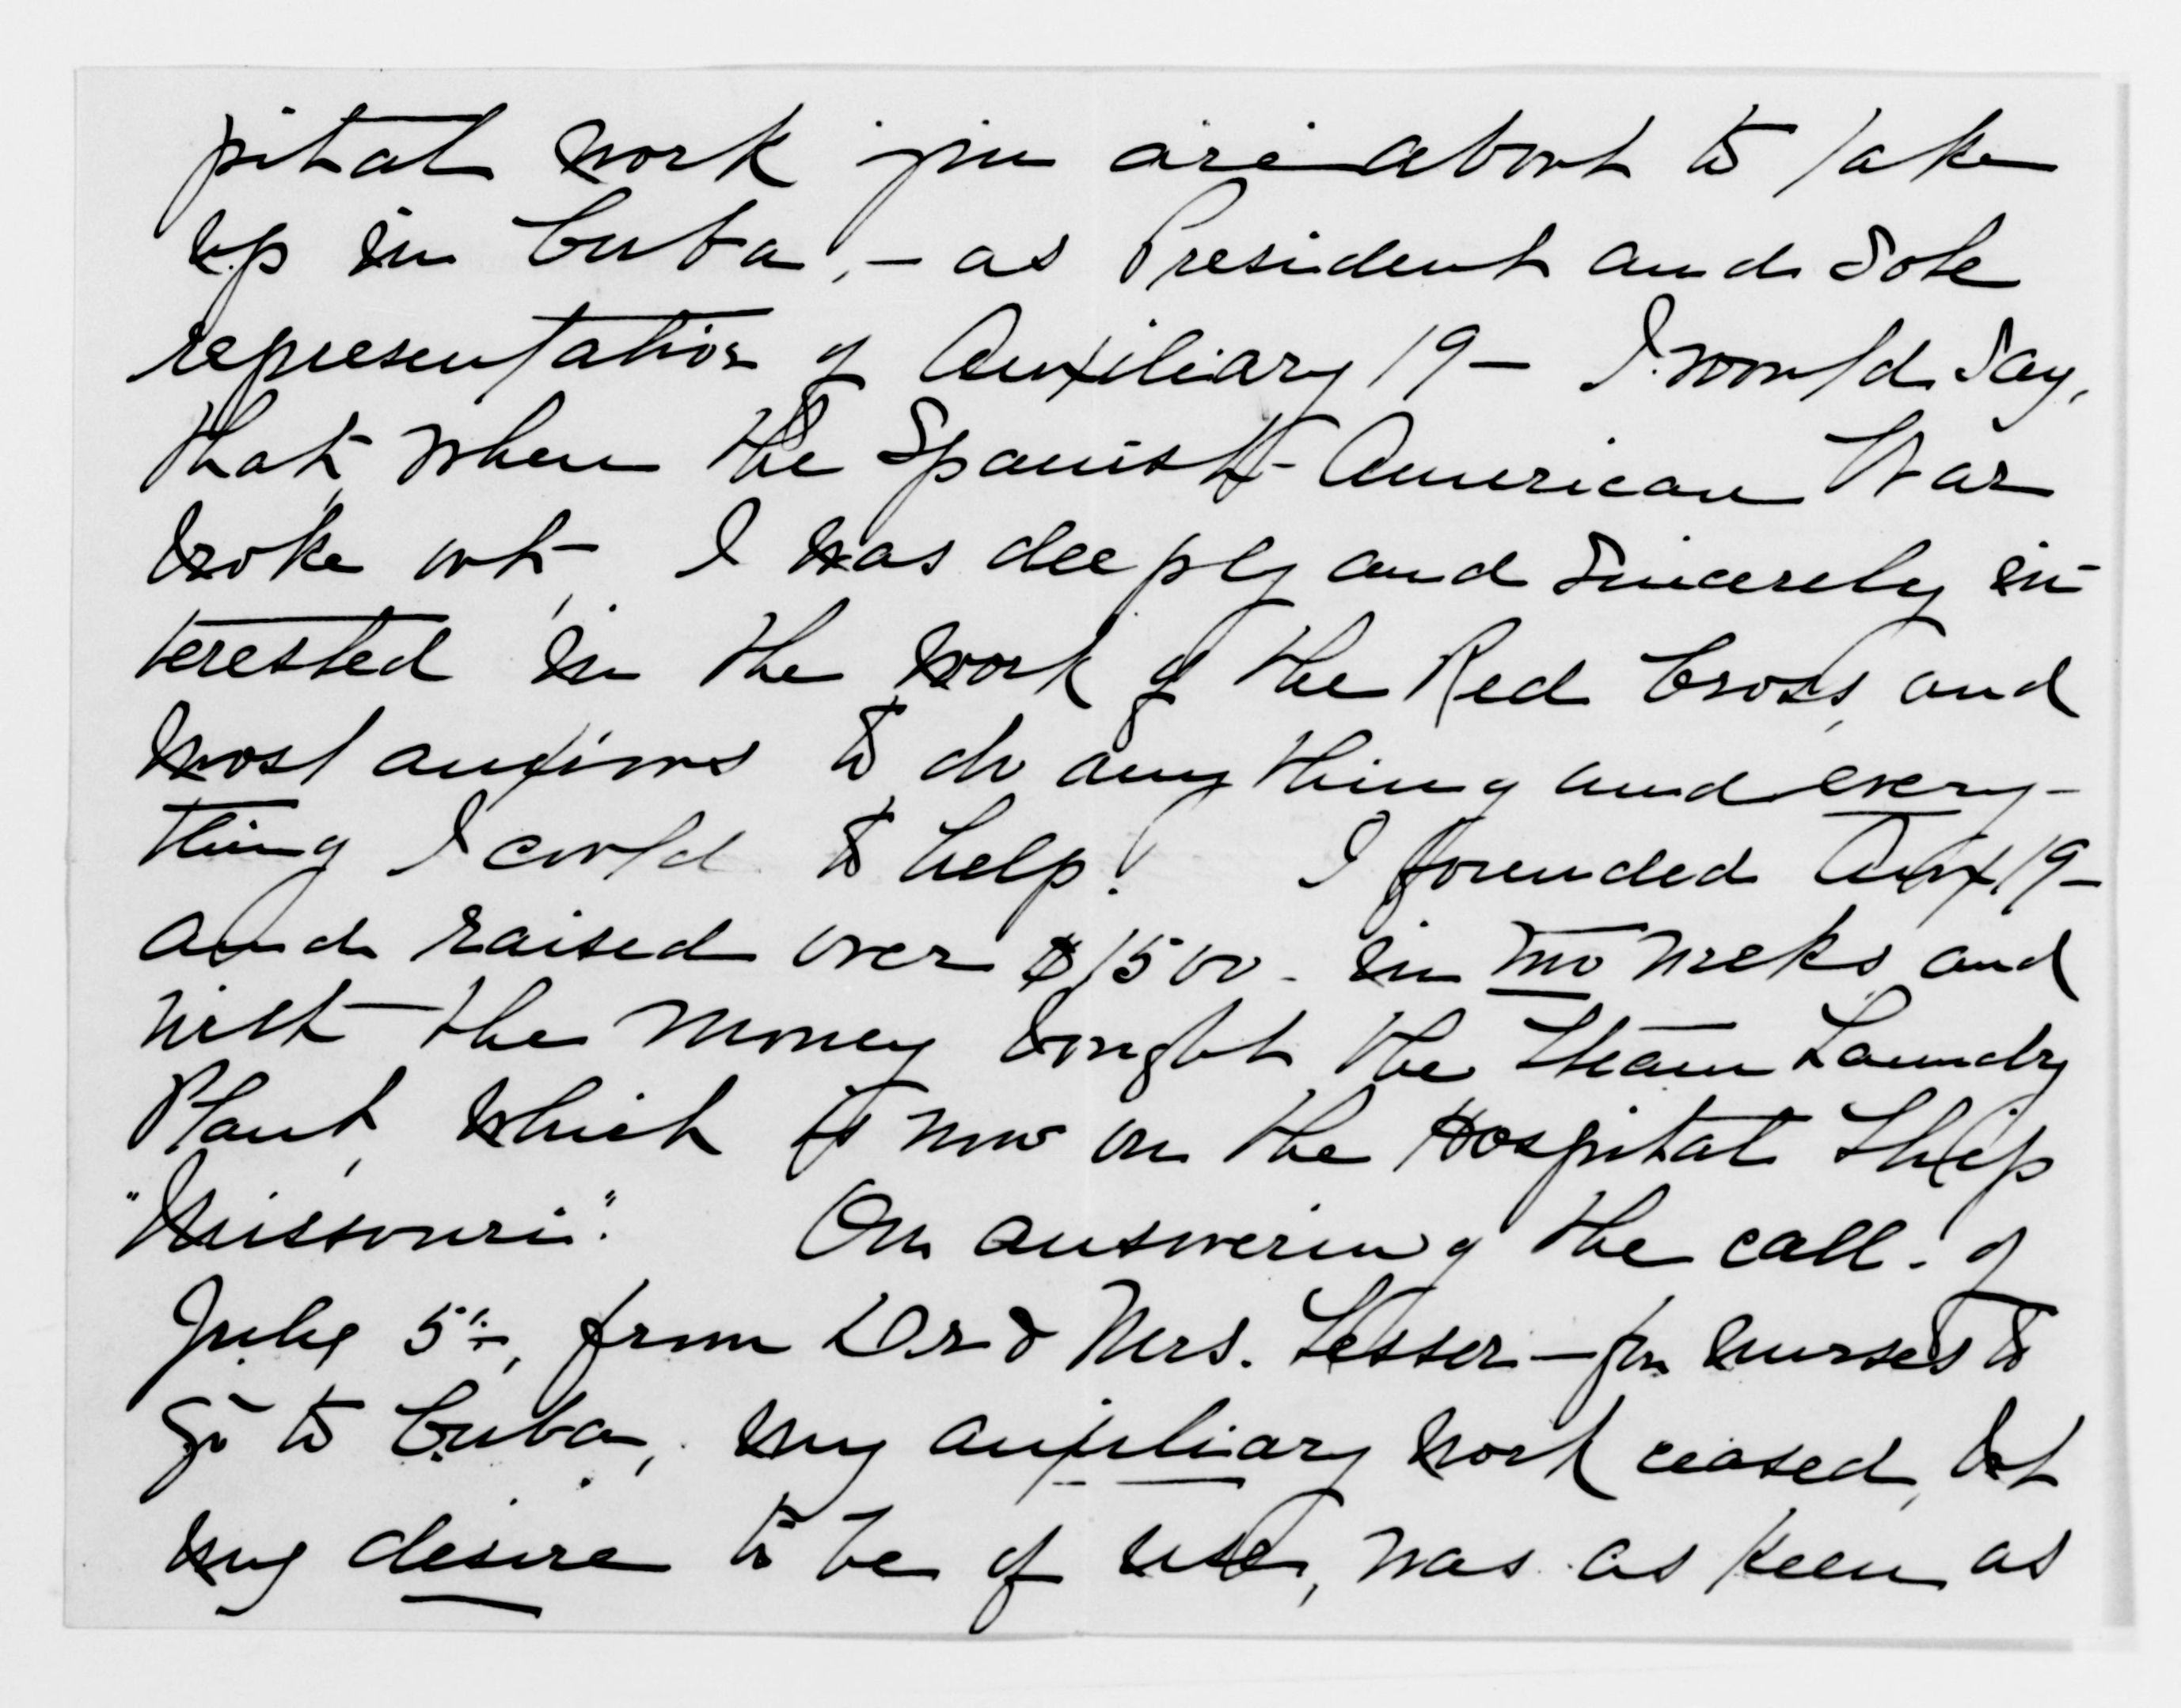 pital work you are about to take
up in Cuba, – as President and Sole
representation of Auxiliary 19 – I would say,
that, when the Spanish-American War
broke out, I was deeply and sincerely in-
terested in the work of the Red Cross, and
most anxious to do anything and every-
thing I could to help! I founded Aux 19 –
and raised over $1500 – in two weeks, and
with the money bought the Steam Laundry
Plant, which is now on the Hospital Ship
"Missouri". On answering the call of
July 5th, from Dr & Mrs. Lesser – for nurses to
go to Cuba, my auxiliary work ceased, but
my desire to be of use, was as keen as